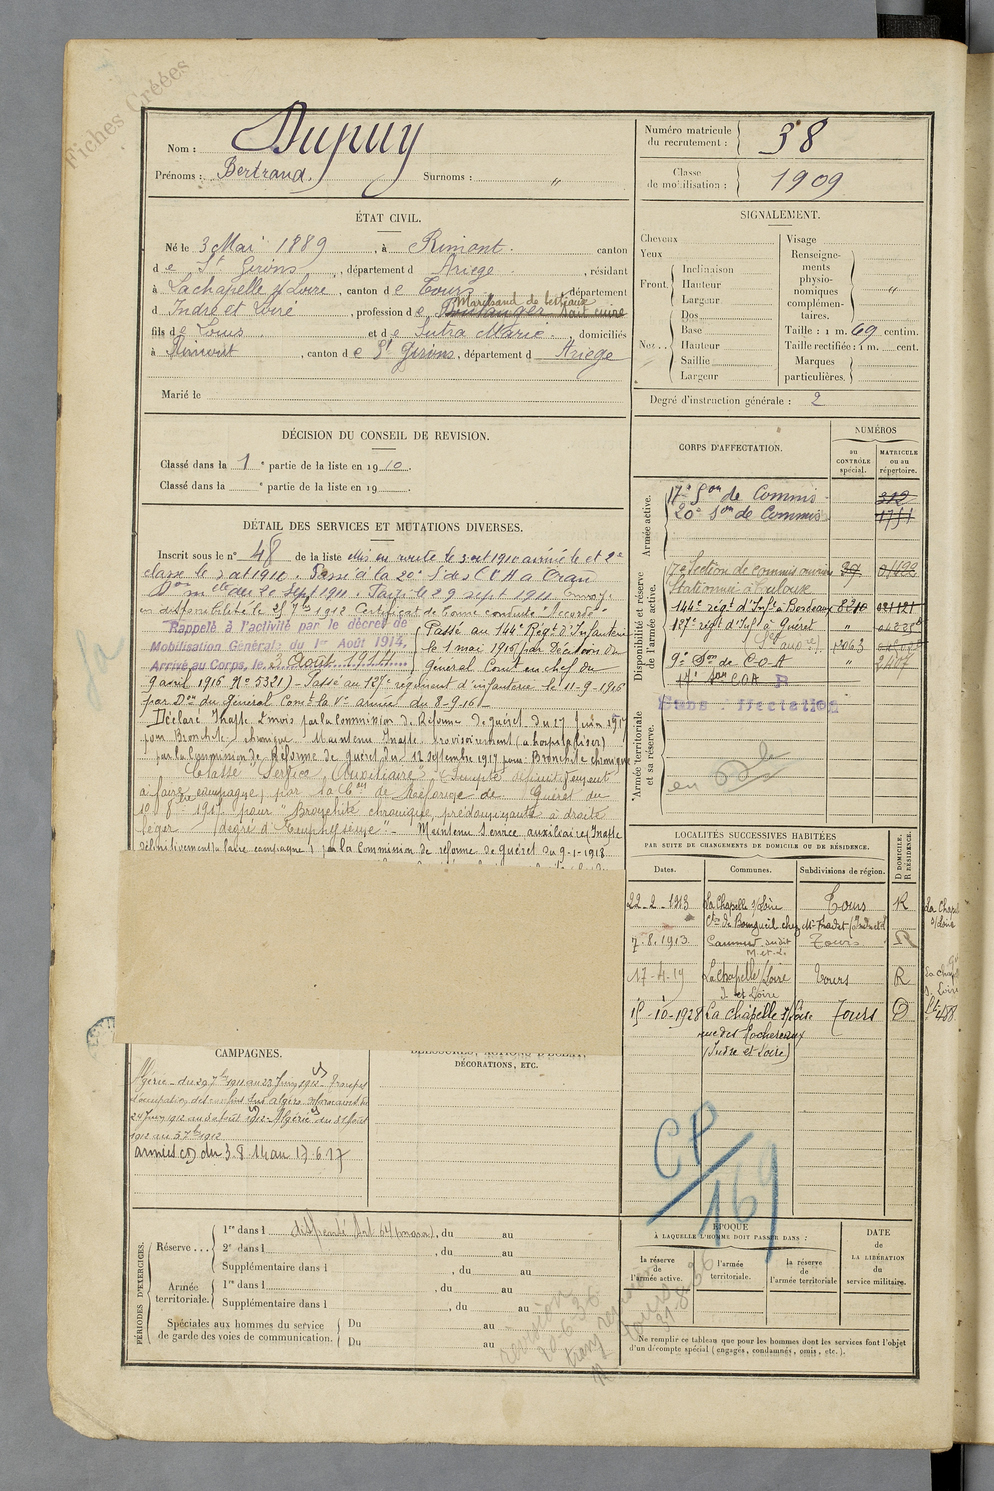 Fiches Créées
Nom : Dupuy
Prénoms : Bertrand. Surnoms : "
Numéro matricule du recrutement : 38
Classe de mobilisation : 1909
ÉTAT CIVIL.
Né le 3 Mai 1889, à Rimont. canton
de St Girons, département d Ariège, résidant
à Lachapelle s/ Loire, canton de Tours département
Marchand de bestiaux
d Indre et Loire, profession de Boulanger sait cuire
fils de Louis et de Sutra Marie, domiciliés
à Rimont, canton de St Girons, département d Ariège
Marié le
SIGNALEMENT.
Cheveux
Yeux
Front. Inclinaison
Hauteur
Largeur
Nez.. Dos
Base
Hauteur
Saillie
Largeur
Visage
Renseignements physionomiques complémentaires. "
Taille : 1 m. 69 centim.
Taille rectifiée : 1 m. cent.
Marques particulières.
Degré d'instruction générale : 2
DÉCISION DU CONSEIL DE REVISION.
Classé dans la 1e partie de la liste en 1910.
Classé dans la e partie de la liste en 19
CORPS D'AFFECTATION.
NUMÉROS
au CONTRÔLE spécial.
MATRICULE ou au répertoire.
Armée active.
17e Son de Commis 312
20e Son de Commis 1751
Disponibilité et réserve de l'armée active.
17e Section de commis ouvriers
Stationnée à Toulouse
144e règt d'Infie à Bordeaux 8210
127e règt d'Inf à Guéret "
9e Son de C.O.A "
17e Son C.O.A
Armée territoriale et sa réserve.
Sans affectation
en
DÉTAIL DES SERVICES ET MUTATIONS DIVERSES.
Inscrit sous le n° 48 de la liste Mis en route le 3 oct 1910 arrivé le et 2e
classe le 3 oct 1910. Passé à la 20e Son des C.O.A à Oran
Don mlle du 20 Sept 1911. Parti le 29 sept 1911 Envoyé
en disponibilité le 25 7bre 1912 Certificat de bonne conduite "Accordé"
Rappelé à l'activité par le décret de
Mobilisation Générale du 1er Août 1914,
Arrivé au Corps, le 3 Août 1914
Passé au 144e Régt d'Infanterie
le 1 mai 1916 (par décision du
Général Comt en chef du
9 avril 1916 N° 5321) - Passé au 127e régiment d'infanterie le 11-9-1916
par Don du Général Comt la Ve armée du 8-9-16
Déclaré Inapte 2 mois par la Commission de Réforme de guéret du 27 Juin 1917
pour Bronchite chronique Maintenu Inapte provisoirement (à hospitaliser)
par la Commission de Réforme de Guéret du 12 septembre 1917 pour Bronchite chronique
Classé "Service Auxiliaire" (Inapte définitivement
à faire campagne) par la Con de Réforme de Guéret du
1917 pour "Bronchite chronique prédominante à droite
léger degré d'Emphysème" - Maintenu Service auxiliaire (Inapte
définitivement à faire campagne) par la Commission de réforme de Guéret du 9-1-1918
LOCALITÉS SUCCESSIVES HABITÉES
PAR SUITE DE CHANGEMENTS DE DOMICILE OU DE RÉSIDENCE.
Dates.
Communes.
Subdivisions de région.
D DOMICILE.
R RÉSIDENCE.
22-2-1913 La Chapelle s/Loire Tours R
Cton de Bourgueil chez Mr
7.8.1913 Tours R
M.-et-L.
17-4-19 La chapelle s/Loire Tours R
I. et Loire
15-10-1928 La Chapelle s/Loire Tours D
rue des Rochereaux
(Indre et Loire)
CAMPAGNES.
BLESSURES, ACTIONS D'ÉCLAT,
DÉCORATIONS, ETC.
24 Juin 1912 au
1912 au 5 7bre 1912
armées (C) du 3.8.14 au 17.6.17
CP/169
PÉRIODES D'EXERCICES.
Réserve... 1re dans l dispensé, du au
2e dans l , du au
Supplémentaire dans l , du au
Armée territoriale. 1re dans l , du au
Supplémentaire dans l , du au
Spéciales aux hommes du service
de garde des voies de communication. Du au
Du au
ÉPOQUE
À LAQUELLE L'HOMME DOIT PASSER DANS :
la réserve de l'armée active.
l'armée territoriale.
la réserve de l'armée territoriale
DATE de LA LIBÉRATION du service militaire.
Ne remplir ce tableau que pour les hommes dont les services font l'objet
d'un décompte spécial (engagés, condamnés, omis, etc.).